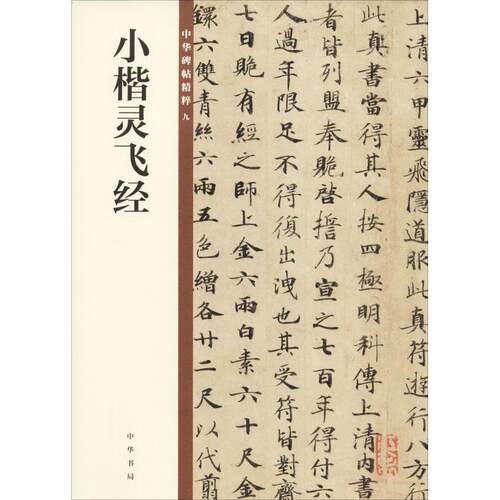 小楷灵飞经
中华碑帖精粹 九
中华书局
上清六甲靈飛隱道服此真符遊行八方
此真書當得其人按四極明科傳上清内
者皆列盟奉賝啓誓乃宣之七百年得付六
人過年限足不得復出洩也其受符皆對齊
七日賝有經之師上金六兩白素六十尺金
鐶六雙青絲六兩五色繒各廿二尺以代翦